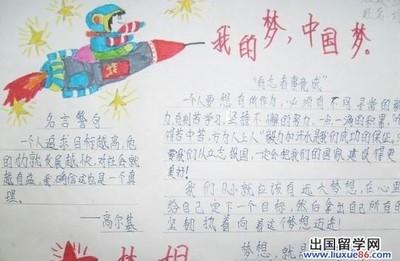 我的梦,中国梦。
名言警句
一个人追求目标越高,他
的才能发展越快,对社会就
越有益,我确信这也是一个真
理。
——高尔基
“有志者事竟成”
一个人要想有所作为,必须有不同寻常的努
力,刻苦学习,坚持不懈的努力,一点一滴的积累,
苦中苦,方为人上人”毅力加汗水是我们成功的保证,
要我们从立志报国,一定会把我们的国家建设得更
美好!
我们从小就应该有远大梦想,在心里
给自己定下一个目标,然后拿出自己所有的
执着向着这个梦想迈进!
梦想
梦想,就是
出国留学网
www.liuxue86.com